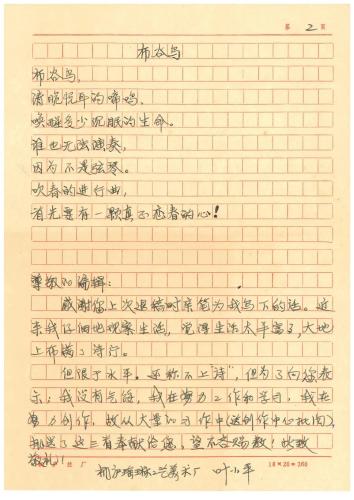 第 2 页
布谷鸟
布谷鸟,
清脆悦耳的啼鸣,
唤醒多少沉眠的生命。
谁也无法演奏,
因为不是弦琴。
吹春的进行曲,
首先要有一颗真正恋春的心!
尊敬的编辑:
感谢您上次退稿时亲笔为我写下的话。近
来我仔细地观察生活,觉得生活太丰富了,大地
上布满了诗行。
但限于水平,还称不上诗",但为了向您表
示:我没有气馁,我在努力工作和学习,我在
努力创作,故从大量的习作中(送创作中心批阅)
了这三首奉献给您,望不吝赐教!此致
敬礼!
18×20=360
工艺美术厂 叶小平